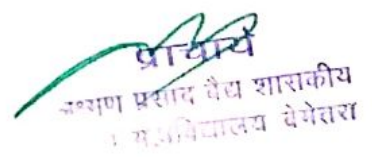 प्राचार्य
लक्ष्मण प्रसाद वैद्य शासकीय
महाविद्यालय बेमेतरा